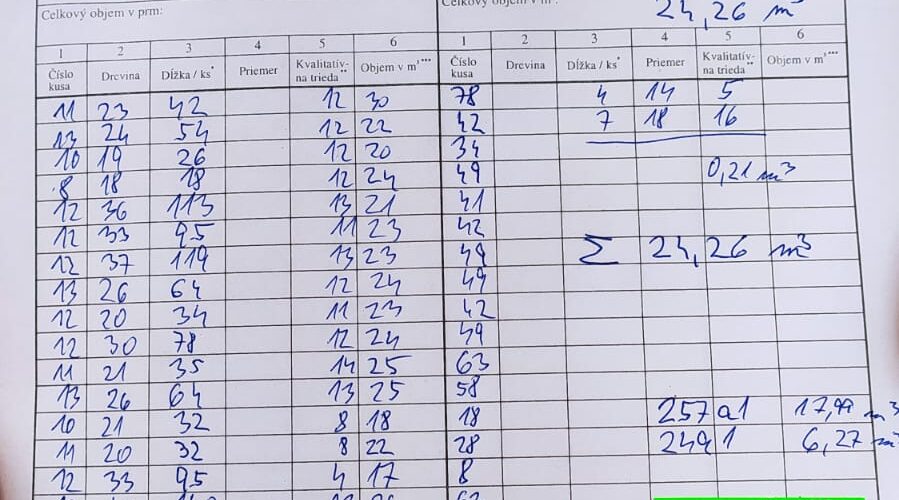 Celkový objem v prm:
Celkový objem v m³: 24,26 m³
1 2 3 4 5 6 1 2 3 4 5 6
Číslo kusa Drevina Dĺžka / ks* Priemer Kvalitatív-na trieda** Objem v m³*** Číslo kusa Drevina Dĺžka / ks* Priemer Kvalitatív-na trieda** Objem v m³***
11 23 42 12 30 78 4 14 5
13 24 54 12 22 42 7 18 16
10 19 26 12 20 34
8 18 18 12 24 49 0,21 m³
12 36 113 13 21 41
12 33 95 11 23 42
12 37 119 13 23 49 Σ 24,26 m³
13 26 64 12 24 49
12 20 34 11 23 42
12 30 78 12 24 49
11 21 35 14 25 63
13 26 64 13 25 58
10 21 32 8 18 18 257a1 17,99 m³
11 20 32 8 22 28 249a1 6,27 m³
12 33 95 4 17 8